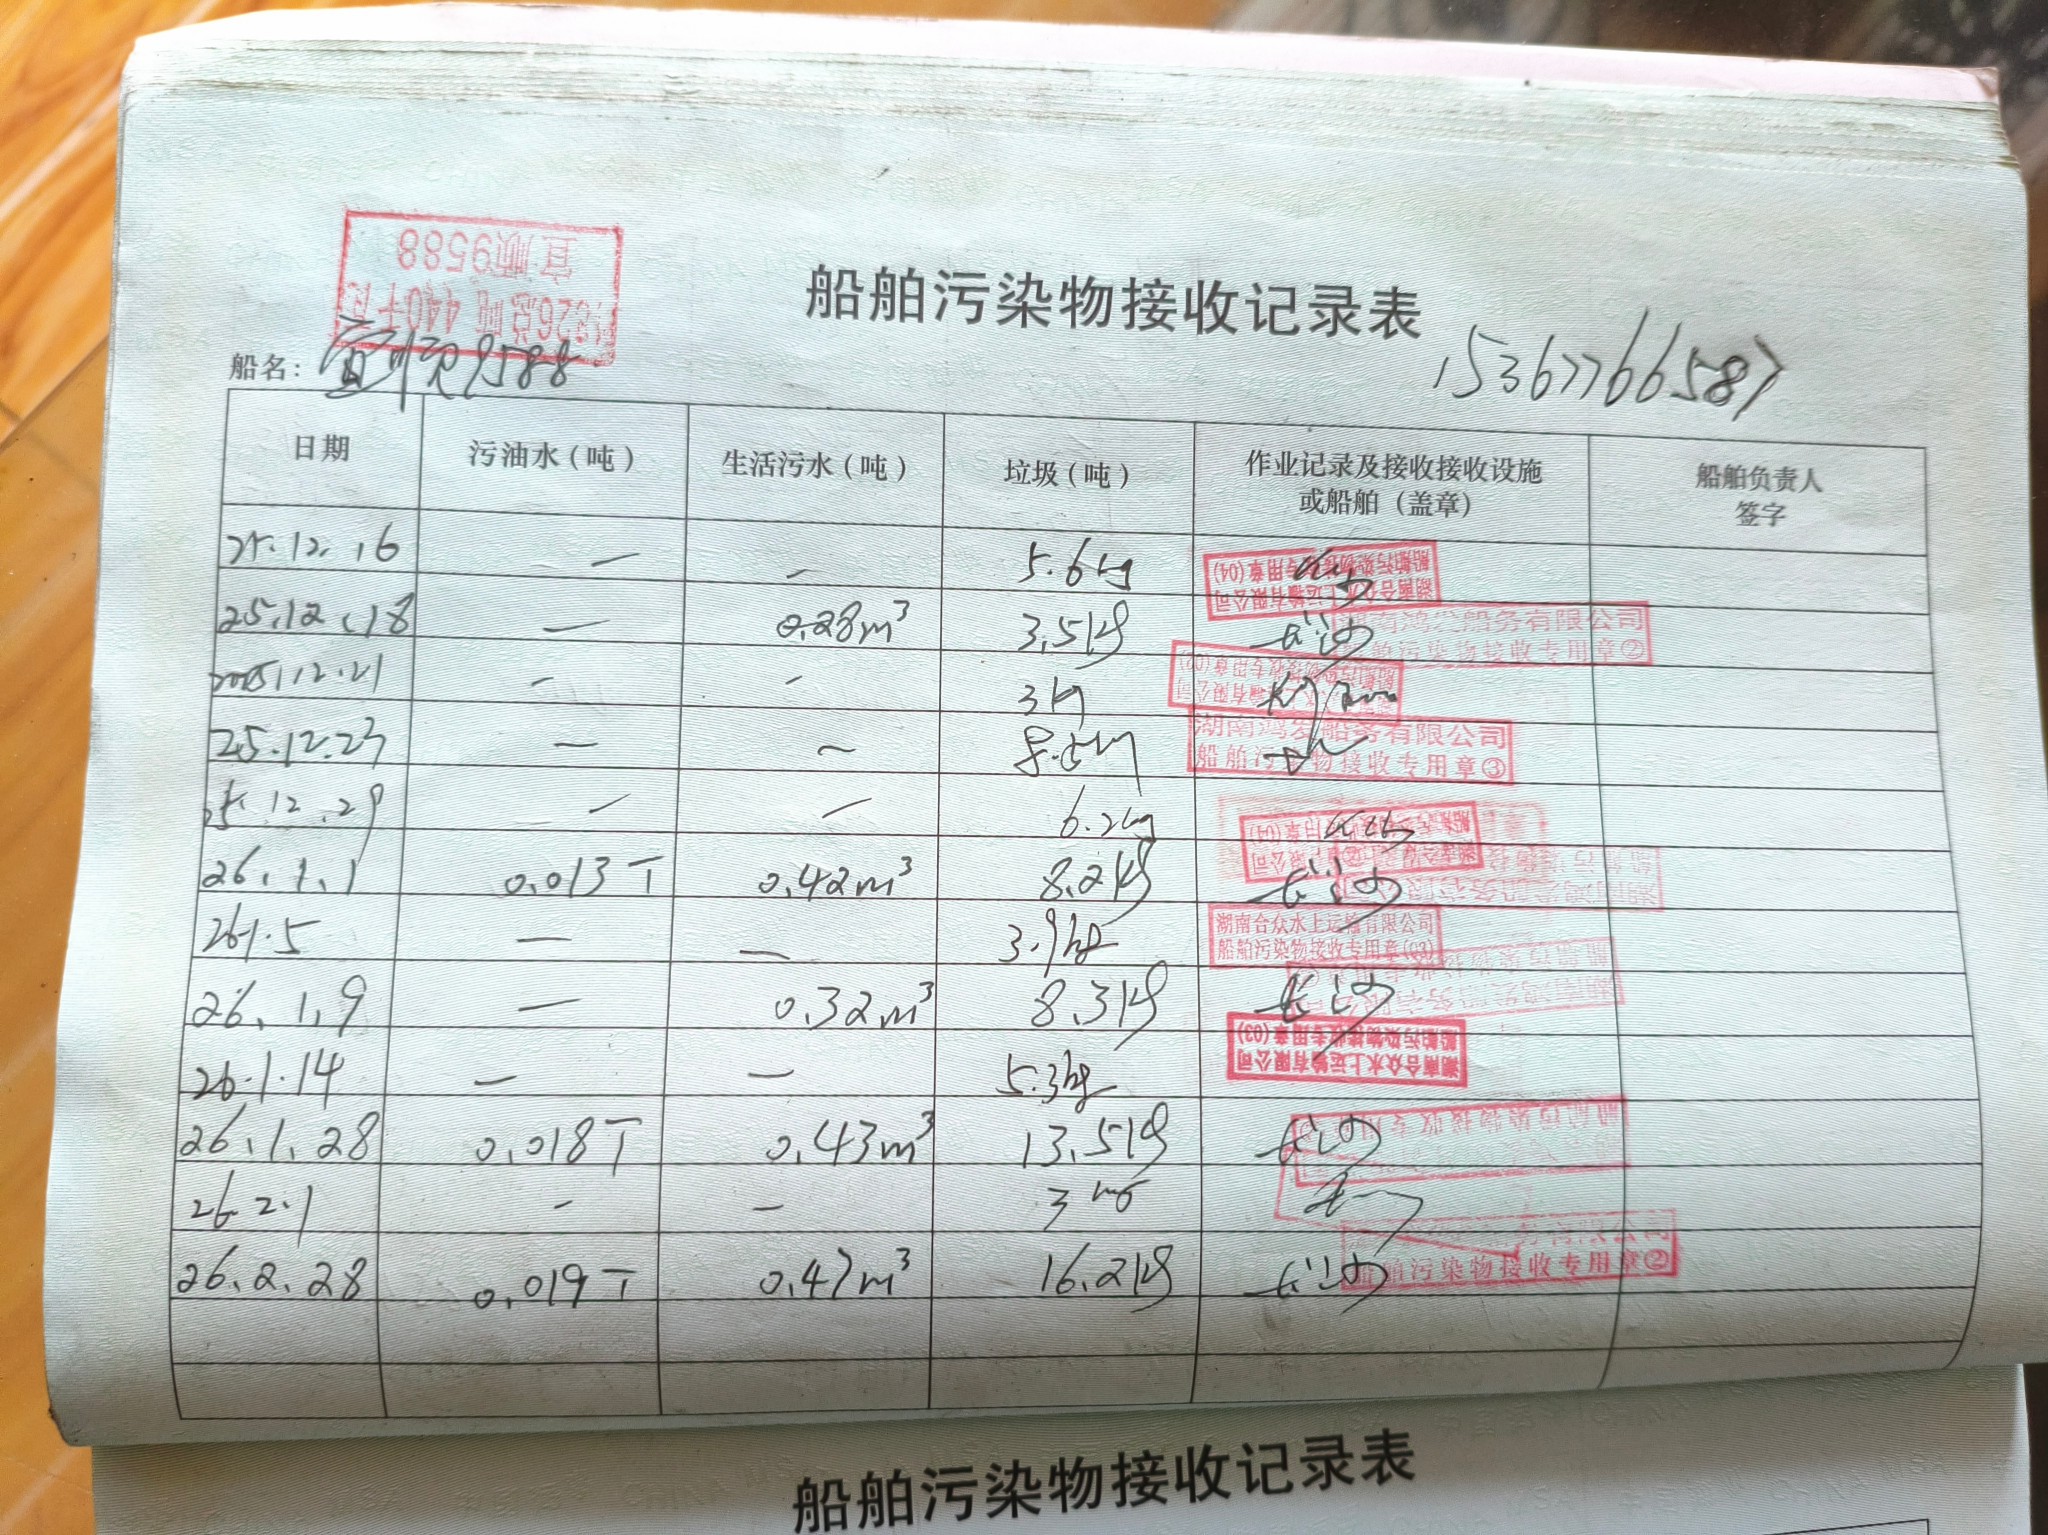 宜顺9588
326总吨 440千瓦
船舶污染物接收记录表
船名: 宜顺9588
15367766587
日期 污油水(吨) 生活污水(吨) 垃圾(吨) 作业记录及接收接收设施或船舶(盖章) 船舶负责人签字
25.12.16 — — 5.6kg 湖南合众水上运输有限公司 船舶污染物接收专用章(04)
25.12.18 — 0.28m³ 3.5kg 长沙 湖南鸿发船务有限公司 船舶污染物接收专用章②
2025.12.21 - - 3kg
25.12.23 — ~ 8.5kg 湖南鸿发船务有限公司 船舶污染物接收专用章③
25.12.29 — — 6.2kg
26.1.1 0.013T 0.42m³ 8.2kg 长沙
26.1.5 — — 3.9kg 湖南合众水上运输有限公司 船舶污染物接收专用章(03)
26.1.9 — 0.32m³ 8.3kg 长沙
26.1.14 — — 5.3kg 湖南合众水上运输有限公司 船舶污染物接收专用章(03)
26.1.28 0.018T 0.43m³ 13.5kg 长沙 船舶污染物接收专用章
26.2.1 - — 3
26.2.28 0.019T 0.47m³ 16.2kg 长沙 船务有限公司 船舶污染物接收专用章②
船舶污染物接收记录表